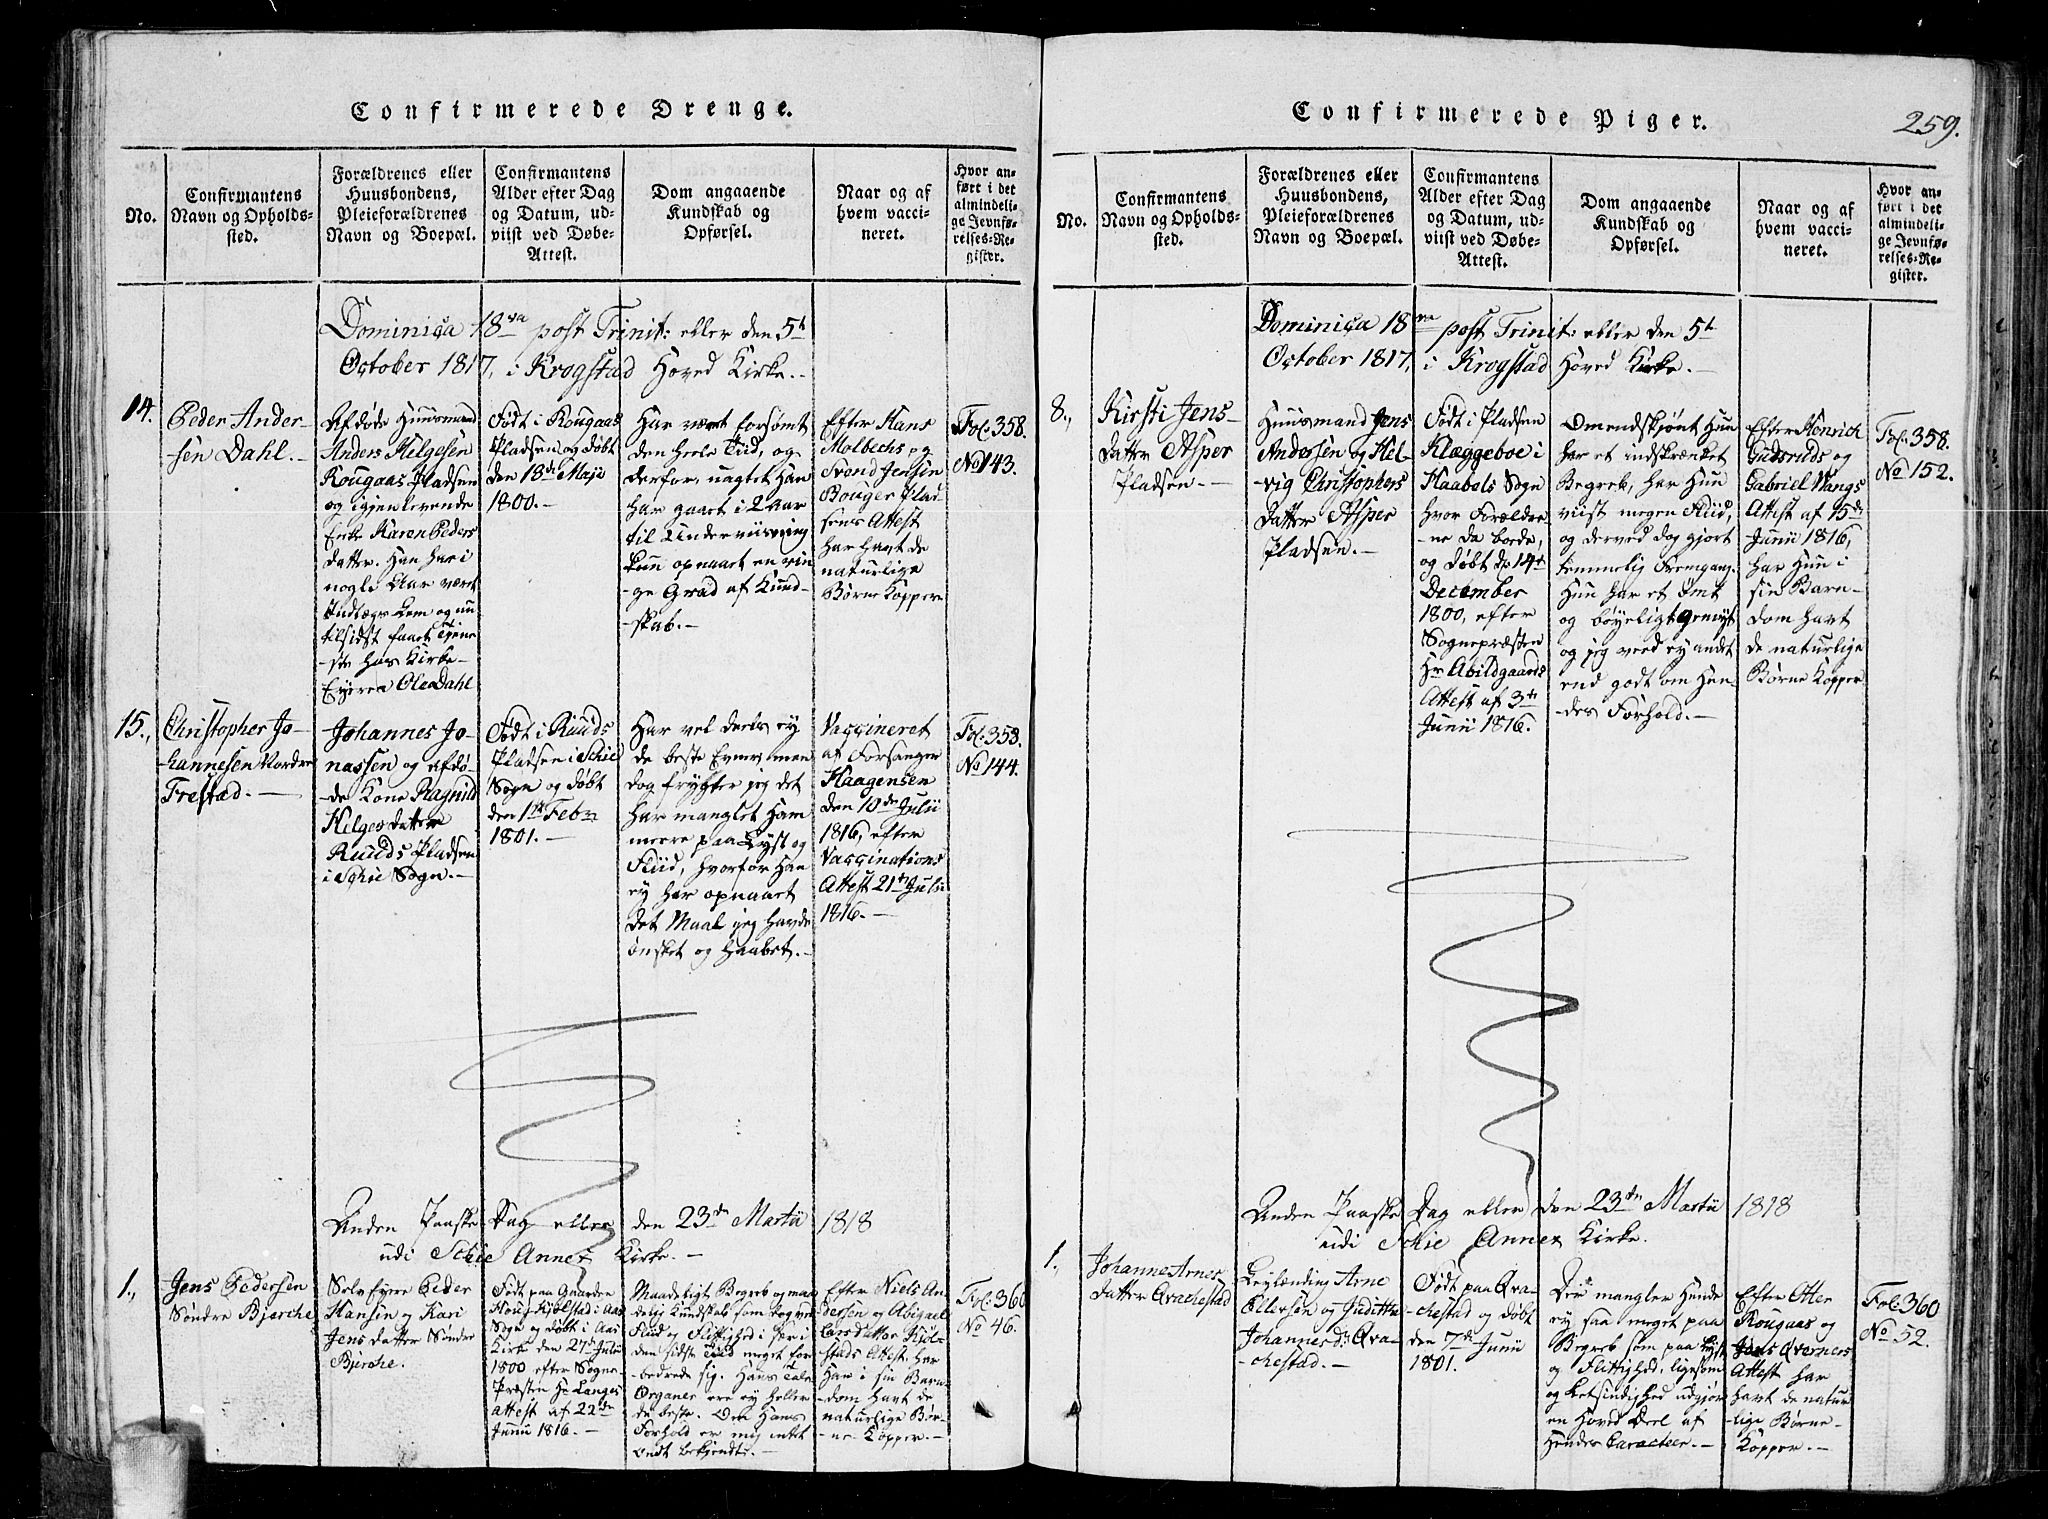 Confirmerede Drenge.
No.
Confirmantens
Navn og Opholds-
sted.
Forældrenes eller
Huusbondens,
Pleieforældrenes
Navn og Boepæl.
Confirmantens
Alder efter Dag
og Datum, ud-
viist ved Døbe-
Attest.
Dom angaaende
Kundskab og
Opførsel.
Naar og af
hvem vacci-
neret.
Hvor an-
ført i det
almindeli-
ge Jevnfø-
relses-Re-
gister.
Dominica 18va post Trinit: eller den 5t
October 1817, i Krogstad Hoved Kirke.-
14.
Peder Ander-
sen Dahl.-
Afdøde Huusmand
Anders Helgesen
Rougaas Pladsen
og igjenlevende
Enke Karen Peders
datter. Han har i
nogle Aar været
Indtægts Lem og nu
tilsidst faaet Tjene
-ste hos Kirke-
Eyeren Ole Dahl
Født i Rougaas
Pladsen og døbt
den 18de Maji
1800.-
Har været forsømt
den heele Tiid, og
derfor, uagtet Han
har gaaet i 2 Aar
til Underviisning
kun opnaaet en rin
-ge Grad af Kund-
-skab.-
Efter Hans
Molbechs og
Svend Jensen
Bouger Plad
sens Attest
har havt de
naturlige
Børne Kopper
Fol: 358.
No 143.
15.,
Christopher Jo-
hannesen Nordre
Frestad.-
Johannes Jo-
nassen og afdø-
-de Kone Ragnild
Helges datter
Ruuds Pladsen
i Schie Sogn.-
Født i Ruuds
Pladsen i Schie
Sogn og døbt
den 1ste Febr
1801.-
Har vel deels ey
de beste Evner, men
dog frygter jeg det
har manglet Ham
meere paa Lyst og
Fliid, hvorfor Han
ey har opnaaet
det Maal jeg havde
ønsket og haabet.-
Vaccineret
af Forsanger
Haagensen
den 10de Julii
1816, efter
Vaccinations
Attest 21te Julii
1816.-
Fol: 353.
No 144.
Anden Paaske Dag eller den 23de Martii 1818
udi Schie Annex Kirke.-
1.,
Jens Pedersen
Søndre Bjerche
Selveyer Peder
Hansen og Kari
Jens datter Søndre
Bjerche.
Født paa Gaarden
Houg Kjølstad i Aas
Sogn og døbt i Aas
Kirke den 27de Julii
1800 efter Sogne-
Præsten Hr Langes
Attest af 22de
Junii 1816.-
Maadeligt Begreb og maa
delig Kundskab, som dog ved
Fliid og Flittighed i Hær i
den sidste Tiid meget for
bedrede sig. Hans Tale
Organer ere ey heller
de beste. Om Hans
Forhold er mig intet
ondt bekjendt.-
Efter Niels An
dersen og Abigael
Larsdatter Kjøl-
stads Attest har
Han i sin Barn-
-dom havt de
naturlige Bør-
-ne Kopper.-
Fol: 360
No 46.
Confirmerede Piger.
259.
No.
Confirmantens
Navn og Opholds-
sted.
Forældrenes eller
Huusbondens,
Pleieforældrenes
Navn og Boepæl.
Confirmantens
Alder efter Dag
og Datum, ud-
viist ved Døbe-
Attest.
Dom angaaende
Kundskab og
Opførsel.
Naar og af
hvem vacci-
neret.
Hvor an-
ført i det
almindeli-
ge Jevnfø-
relses-Re-
gister.
Dominica 18va post Trinit: eller den 5t
October 1817, i Krogstad Hoved Kirke.-
8.,
Kirsti Jens-
datter Asper
Pladsen.-
Huusmand Jens
Andersen og Hel-
-vig Christophers
datter Asper
Pladsen.-
Født i Pladsen
Klæggeboe i
Haabøls Sogn
hvor Forældre
-ne da boede,
og døbt d. 14de
December
1800, efter
Sognepræsten
Hr Abildgaards
Attest af 3die
Junii 1816.
Omendskjønt Hun
har et indskrænket
Begreb, har Hun
viist megen Fliid,
og derved dog gjort
temmelig Fremgang.
Hun har et ømt
og bøyeligt Gemyt
og jeg veed ey andet
end godt om Hen-
-des Forhold.-
Efter Henrich
Gudsruds og
Gabriel Wangs
Attest af 15de
Junii 1816,
har Hun i
sin Barn-
dom havt
de naturlige
Børne Kopper
Fol: 358.
No 152.
Anden Paaske Dag eller den 23de Martii 1818
udi Schie Annex Kirke.
1.,
Johanne Arnes
datter Qvachestad
Leylænding Arne
Ellersen og Judithe
Johannesd. Qva-
-chestad.-
Født paa Qva-
-chestad og døbt
den 7de Junii
1801.-
Der mangler Hende
ey saa meget paa
Begreb som paa Lyst
og Flittighed, ligesom
og Letsindighed udgjør
en Hoved Deel af
Hendes Caracteer.-
Efter Otter
Rougaas og
Jens Qverners
Attest har
havt de natur
-lige Børne-
Kopper.-
Fol: 360
No 52.